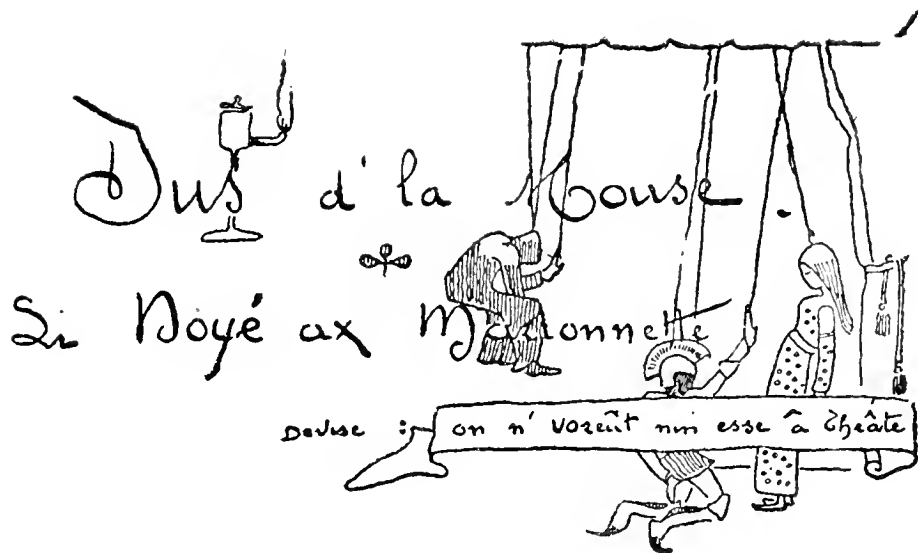 Jus d' la Mouse .
Li Noyé ax Marionnette
Devise : on n' voreût nin esse â Théâte